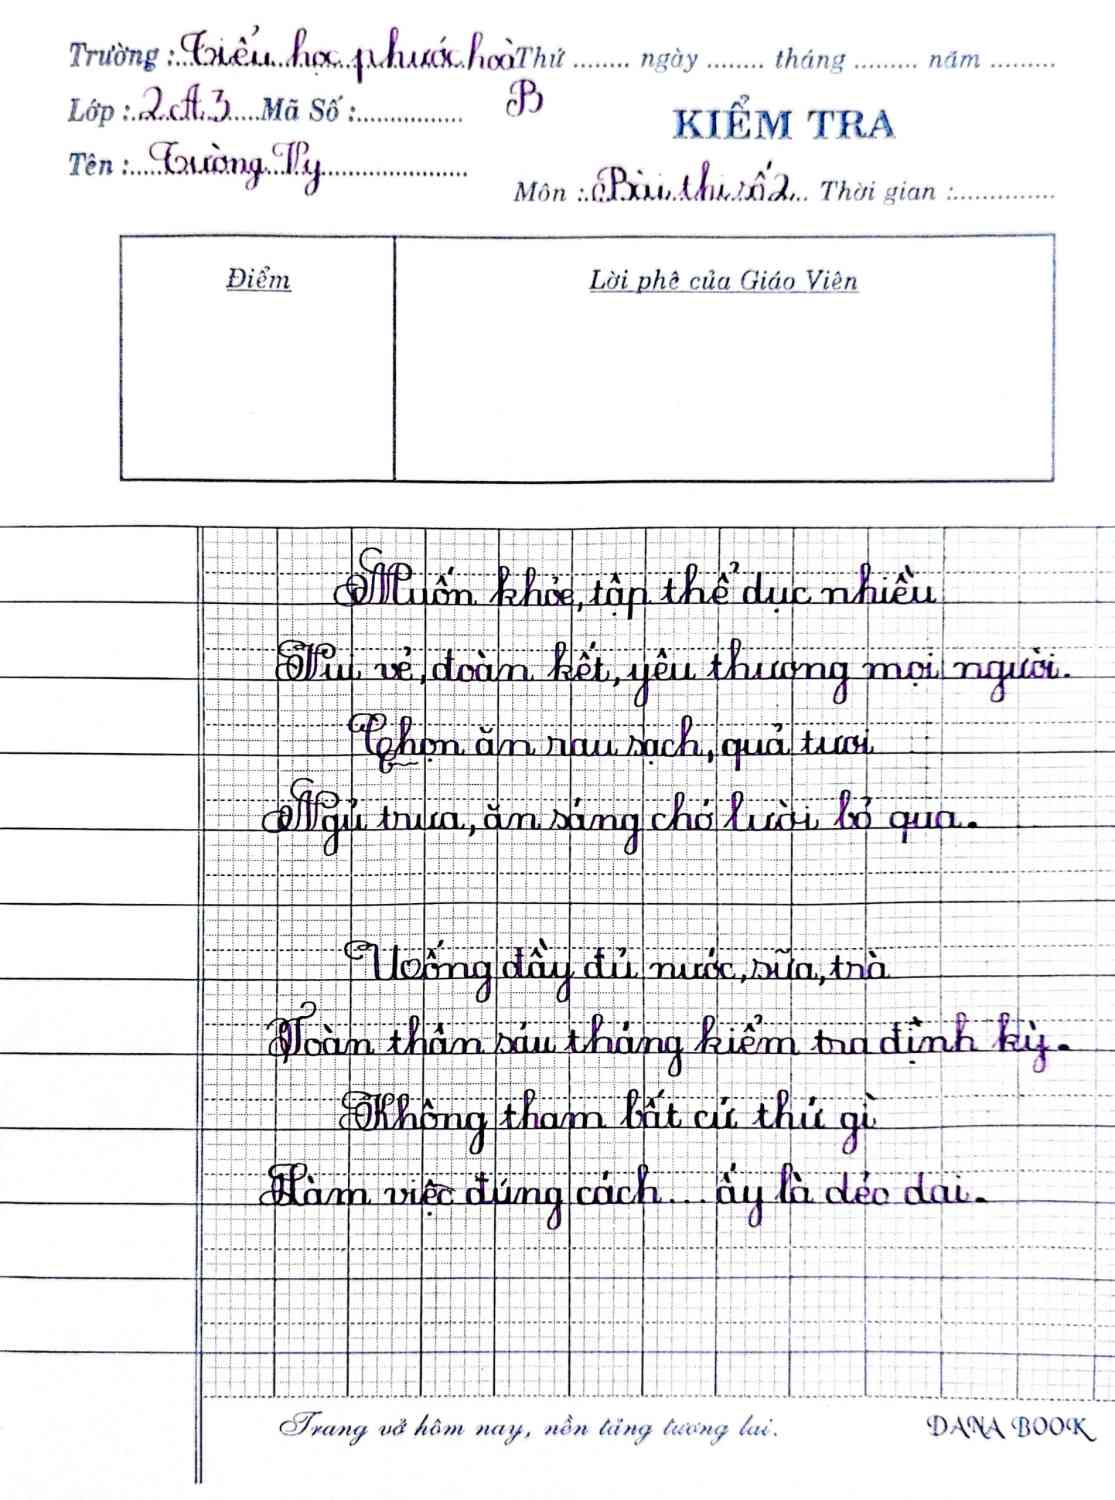 Trường : Tiểu học phước hoà Thứ ........ ngày ........ tháng ......... năm .........
B
Lớp : 2A3 Mã Số :...............
KIỂM TRA
Tên : Tường Vy
Môn : Bài thi số 2 Thời gian :..............
Điểm
Lời phê của Giáo Viên
Muốn khỏe, tập thể dục nhiều
Vui vẻ, đoàn kết, yêu thương mọi người.
Chọn ăn rau sạch, quả tươi
Ngủ trưa, ăn sáng chớ lười bỏ qua.
Uống đầy đủ nước, sữa, trà
Toàn thân sáu tháng kiểm tra định kỳ.
Không tham bất cứ thứ gì
Làm việc đúng cách... ấy là dẻo dai.
Trang vở hôm nay, nền tảng tương lai.
DANA BOOK